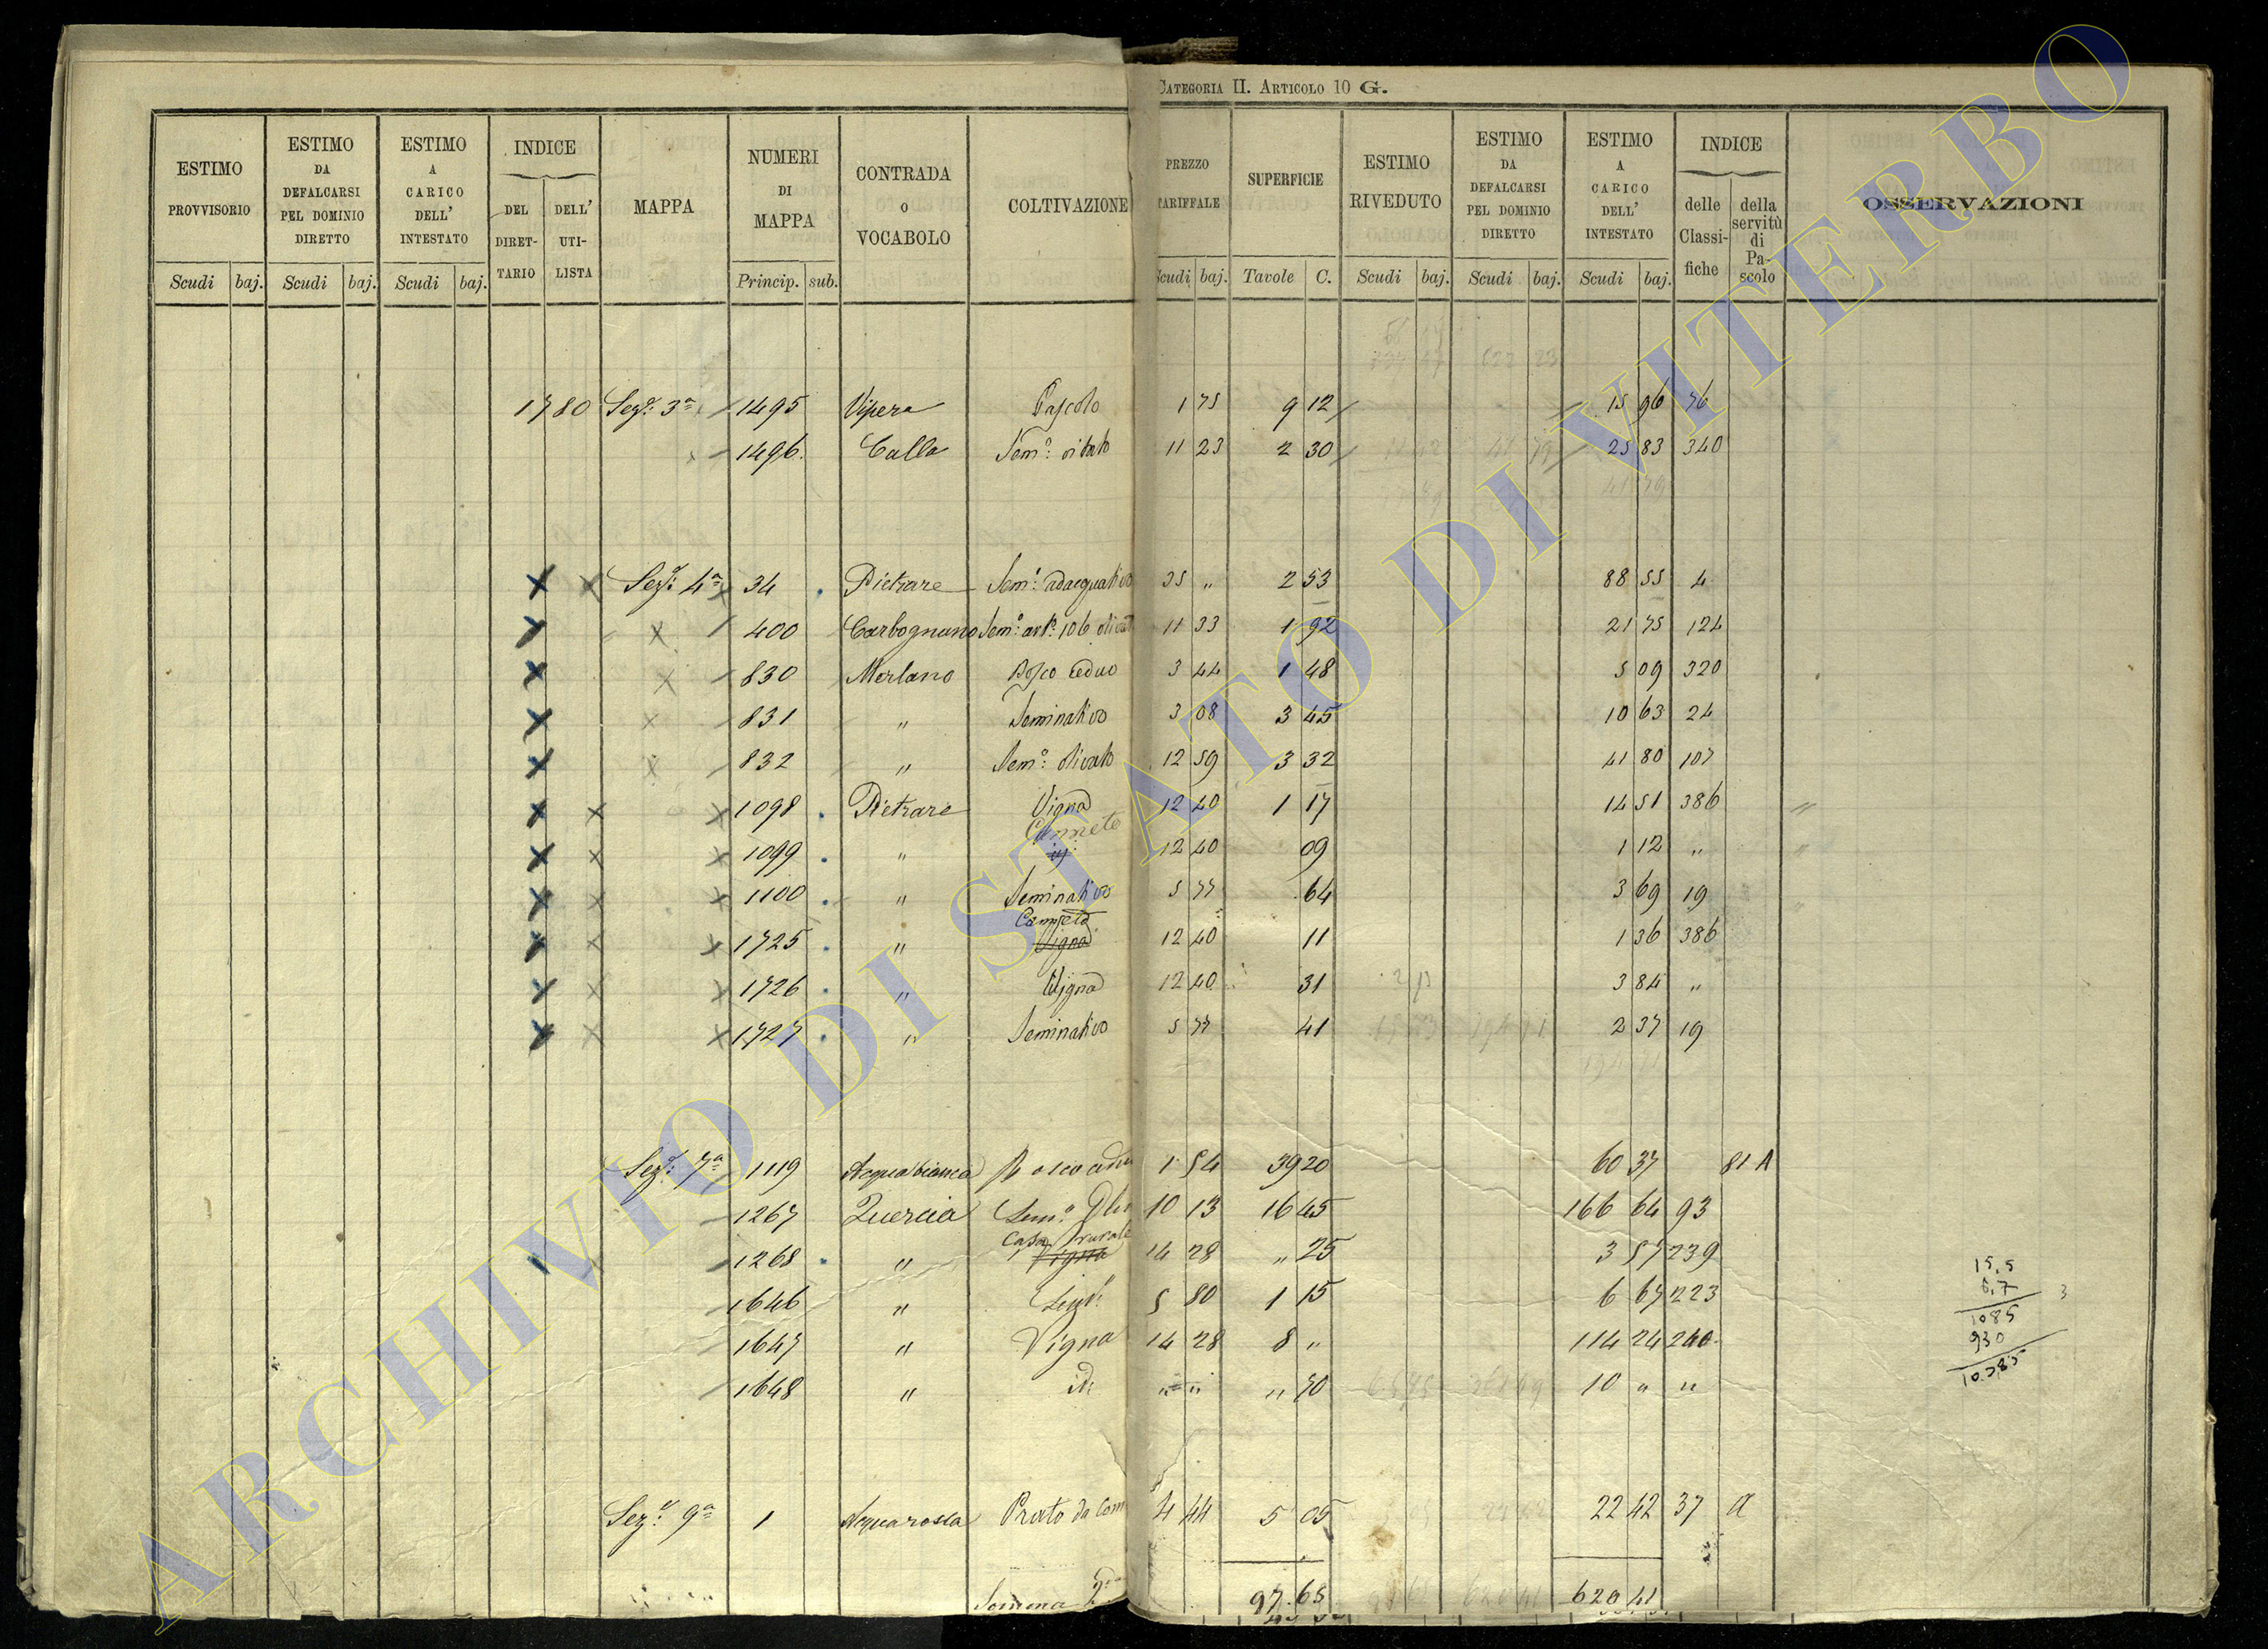 CATEGORIA II. ARTICOLO 10 G.
ESTIMO PROVVISORIO
ESTIMO DA DEFALCARSI PEL DOMINIO DIRETTO
ESTIMO A CARICO DELL' INTESTATO
INDICE
DEL DIRETTARIO
DELL' UTILISTA
MAPPA
NUMERI DI MAPPA
CONTRADA O VOCABOLO
COLTIVAZIONE
PREZZO TARIFFALE
SUPERFICIE
ESTIMO RIVEDUTO
ESTIMO DA DEFALCARSI PEL DOMINIO DIRETTO
ESTIMO A CARICO DELL' INTESTATO
INDICE
delle Classifiche
della servitù di Pascolo
OSSERVAZIONI
Scudi baj. Scudi baj. Scudi baj. Princip. sub. Scudi baj. Tavole C. Scudi baj. Scudi baj. Scudi baj.
1780 Sez.e 3a 1495 Vipera Pascolo 1 75 9 12 15 96 76
1496 Calla Sem.o 11 23 2 30 25 83 340
Sez.e 4a 34 Pietrare Sem.o adacquativo 35 " 2 53 88 55 4
400 Carbognano Sem.o 106 11 33 1 92 21 75 124
830 Merlano Bosco ceduo 3 44 1 48 5 09 320
831 " Seminativo 3 08 3 45 10 63 24
832 " Sem.o olivato 12 59 3 32 41 80 107
1098 Pietrare Vigna 12 40 1 17 14 51 386
Canneto
1099 " id 12 40 09 1 12 "
1100 " Seminativo 5 77 64 3 69 19
Canneto
1725 " Vigna 12 40 11 1 36 386
1726 " Vigna 12 40 31 3 84 "
1727 " Seminativo 5 77 41 2 37 19
Sez.e 7a 1119 Acquabianca Bosco cedu 1 54 39 20 60 37 81 A
1267 Quercia Sem.o Oliv 10 13 16 45 166 64 93
Casa rurale
1268 " Vigna 14 28 " 25 3 57 239
1646 " Sem.o 5 80 1 15 6 67 223
1647 " Vigna 14 28 8 " 114 24 240
1648 " id. " " " 70 10 " "
15,5
6,7
1085
930
10385
Sez.e 9a 1 Acquarossa Prato da Com 4 44 5 05 22 42 37 A
Somma 97.65 620 41
ARCHIVIO DI STATO DI VITERBO